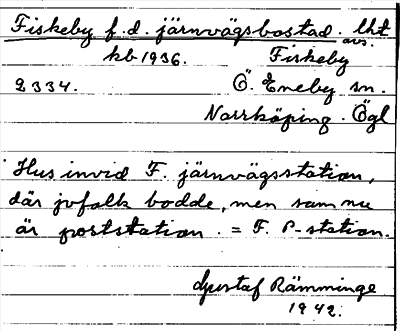 Fiskeby f.d. järnvägsbostad. lht
avs.
kb 1936. Fiskeby
2334. Ö. Eneby sn.
Norrköping. Ögl
Hus invid F. järnvägsstation,
där jvfolk bodde, men som nu
är poststation. = F. P-station.
Gustaf Rämminge
1942.